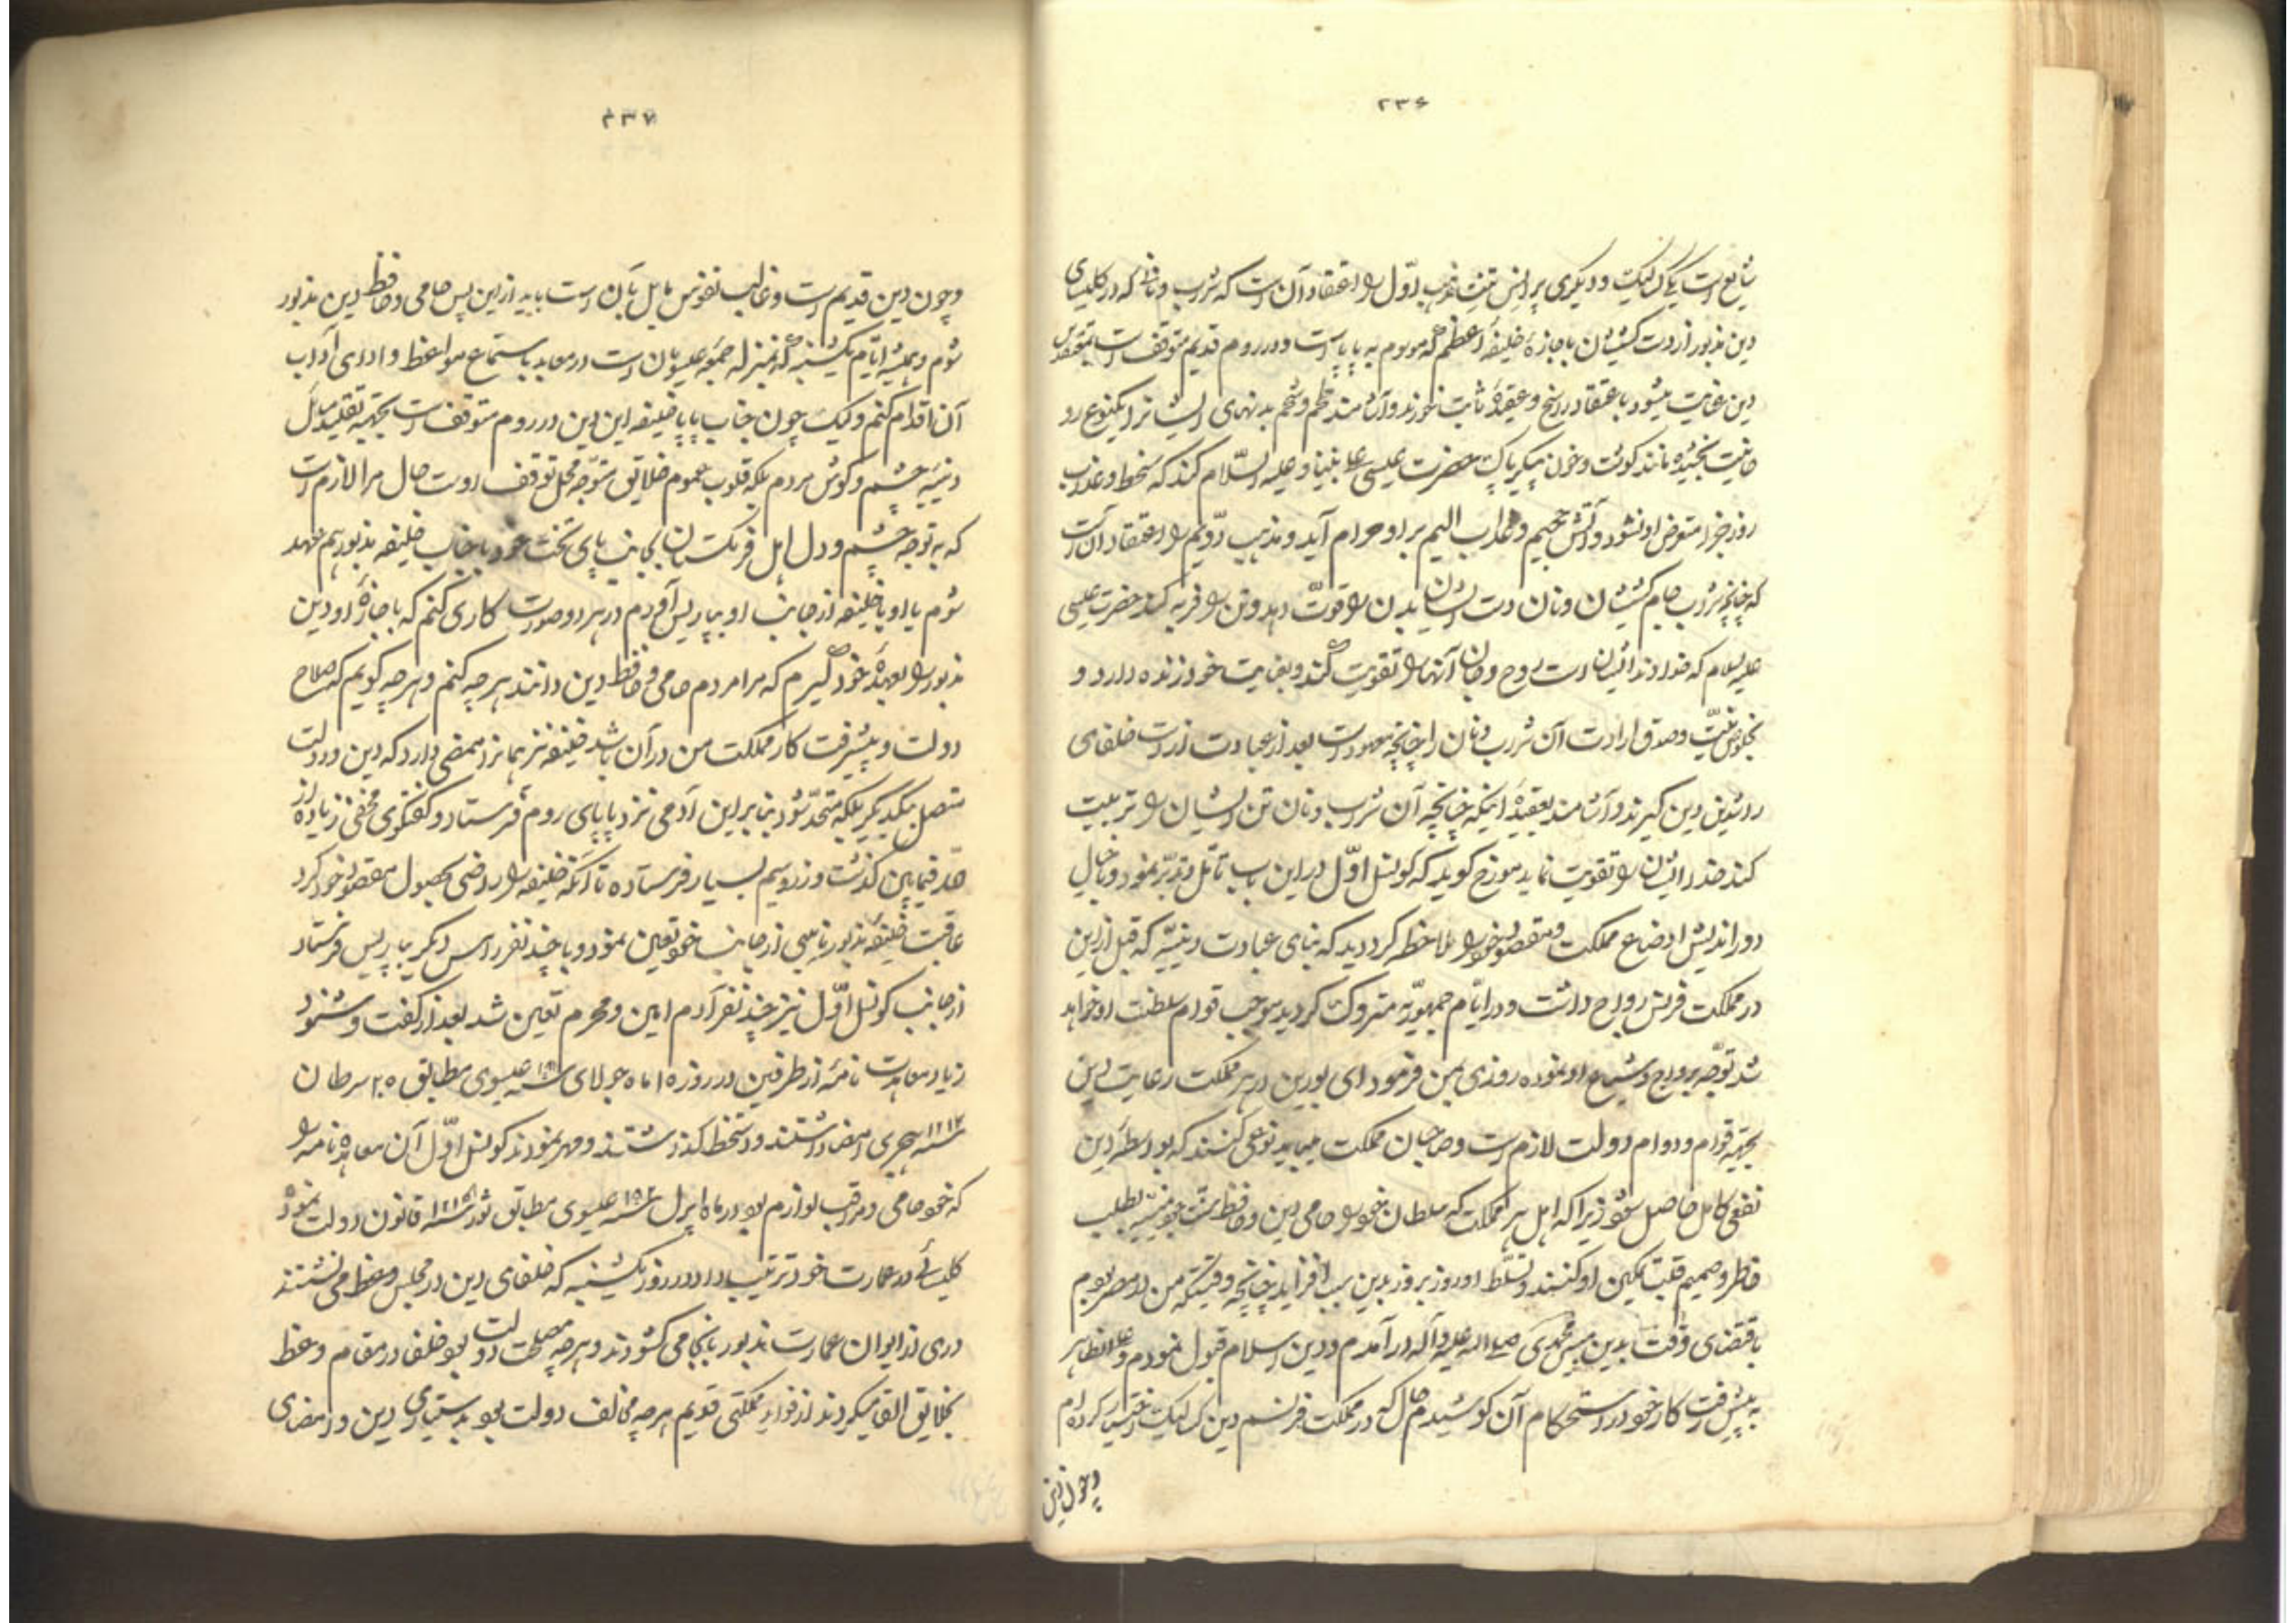 ۲۳۶
شایع است یکی کاتلیک و دیگری پراتستنت مذهب اوّل را اعتقاد آن است که شراب و نان که در کلیسای
دین مذبور از دست کشیشان باجازهٔ خلیفهٔ اعظم که موسوم به پاپا است و در روم قدیم متوقف است بمعتقدین
دین عنایت میشود باعتقاد راسخ و عقیدهٔ ثابت خورند و آشامند لحم و شحم بدنهای ایشانرا یکنوع رو
حانیت بخشیده مانند گوشت و خون پیکر پاک حضرت عیسی علی نبینا و علیه السّلام کند که سخط و غضب
روز جزا متعرض او نشود و آتش جحیم و عذاب الیم بر او حرام آید و مذهب دوّیم را اعتقاد آن است
که چنانچه شراب جام کشیشان و نان دست ایشان بدن را قوّت دهد و تن را فربه کند حضرت عیسی
علیه السلام که خداوند ایشان است روح و جان آنها را تقویت کند و بعنایت خود زنده دارد و
بخلوص نیّت و صدق ارادت آن شراب و نان را چنانچه معهود است بعد از عبادت از دست خلفای
راشدین دین گیرند و آشامند بعقیدهٔ اینکه چنانچه آن شراب و نان تن ایشان را تربیت
کند خدا ایشان را تقویت نماید مورخ گوید که کونسل اوّل در این باب تأمّل و تدبّر نمود و بخیال
دور اندیش اوضاع مملکت و مقصود خود را ملاحظه کرد دید که بنای عبادت دینیّه که قبل از این
در مملکت فرنس رواج داشت و در ایّام جمهوریّه متروک گردید موجب قوام سلطنت او خواهد
شد توجّه برواج و شیاع او نموده روزی بمن فرمود ای بورین در هر مملکت رعایت دین
بجهته قوام و دوام دولت لازم است و صاحبان مملکت میباید نوعی کنند که بواسطهٔ دین
نفعی کامل حاصل شود زیرا که اهل هر مملکت که سلطان خود را حامی دین و حافظ ملت خود بینند بطیب
خاطر و صمیم قلب تمکین او کنند و تسلّط او روز بروز بدین سبب افزاید چنانچه وقتیکه من در مصر بودم
باقتضای وقت بدین مبین محمّدی صلی الله علیه و آله در آمدم و دین اسلام قبول نمودم و علی الظاهر
به پیشرفت کار خود در استحکام آن کوشیدم حال که در مملکت فرانسم دین کاتلیک اختیار کرده ام
و چون دین
۲۳۷
و چون دین قدیم است و غالب نفوس مایل بآن است باید از این پس حامی و حافظ دین مذبور
شوم و همیشه ایّام یکشنبه که بمنزله جمعهٔ عیسویان است در معابد باستماع مواعظ و ادای آداب
آن اقدام کنم و لیک چون جناب پاپا خلیفه این دین در روم متوقف است بجهته تقلید مسائل
دینیّه چشم و گوش مردم بلکه قلوب عموم خلایق متوجّه محلّ توقف اوست حال مرا لازم است
که به توجه چشم و دل اهل فرنگستان بجانب پای تخت خود با جناب خلیفه مذبور هم عهد
شوم یا او یا خلیفه از جانب او بپاریس آورم در هر دو صورت کاری کنم که باجازهٔ او دین
مذبور را بعهدهٔ خود گیرم که مرا مردم حامی و حافظ دین دانند هر چه کنم و هر چه گویم که صلاح
دولت و پیشرفت کار مملکت من در آن باشد خلیفه نیز همانرا ممضی دارد که دین و دولت
متصل بیکدیگر بلکه متحدّ شود بنابر این آدمی نزد پاپای روم فرستاد و گفتگوی مخفی زیاده از
حدّ فیمابین گذشت و زر و سیم بسیار فرستاده تا آنکه خلیفه را راضی بحصول مقصود خود کرد
عاقبت خلیفهٔ مذبور نایبی از جانب خود تعین نمود و با چند نفر راس دیگر بپاریس فرستاد
از جانب کونسل اوّل نیز چند نفر آدم امین و محرم تعین شد بعد از گفت و شنود
زیاد معاهدت نامهٔ از طرفین در روز ۱۵ ماه جولای سنه ۱۸۰۱ عیسوی مطابق ۲۵ سرطان
سنه ۱۲۱۲ هجری امضا داشتند و دستخط گذاشتند و مهر نمودند کونسل اوّل آن معاهده نامه را
که خود حامی و مراقب لوازم بود در ماه اپرل سنه ۱۸۰۲ عیسوی مطابق ثور سنه قانون دولت نمود و
کلیسائے در عمارت خود ترتیب داد در روز یکشنبه که خلفای دین در مجلس وعظ می نشستند
دری از ایوان عمارت مذبور بانجا می کشودند و هر چه مصلحت دولت بود خلفا در مقام وعظ
بخلایق القا میکردند از قواید مملکتی قدیم هر چه مخالف دولت بود بدستیاری دین و امضای